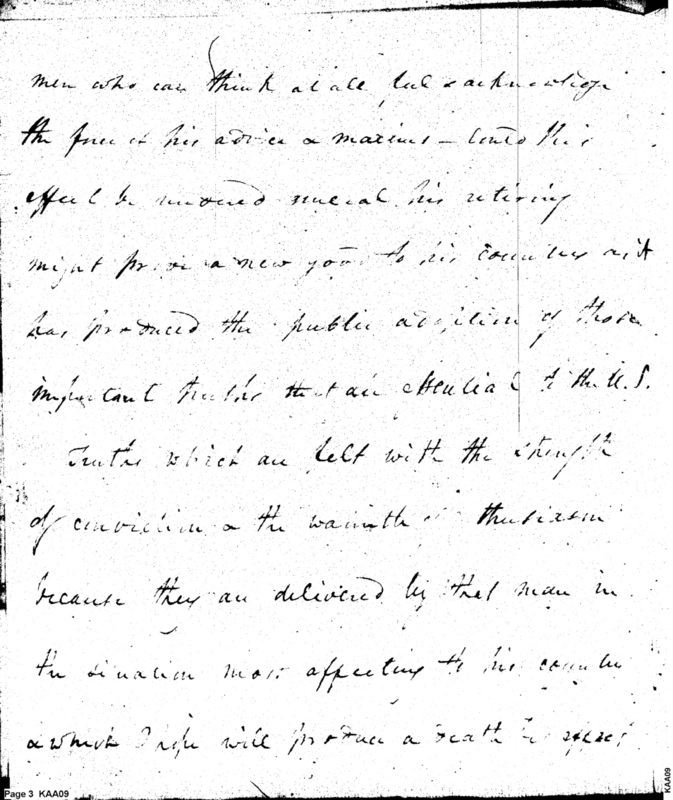 men who can think at all feel & acknowledge
the force of his advice & maxims – Could this
effect be rendered general his retiring
might prove a new good to his country as it
has produced the public adoption of those
important truths that are essential to the U.S.
Truths which are felt with the strength
of conviction & the warmth thusiasm
because they are delivered by that man in
the situation most affecting to his country
& which I hope will produce a
Page 3 KAA09
KAA09